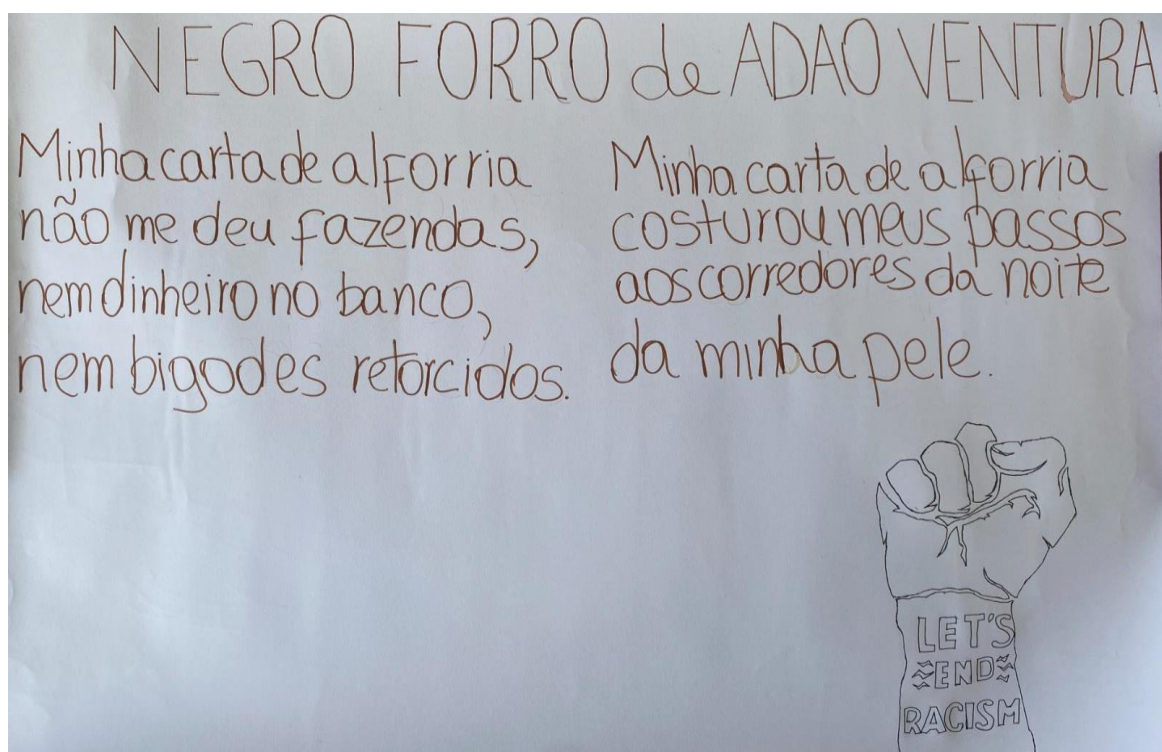 NEGRO FORRO de ADAO VENTURA
Minha carta de alforria
não me deu fazendas,
nem dinheiro no banco,
nem bigodes retorcidos.
Minha carta de alforria
costurou meus passos
aos corredores da noite
da minha pele.
LET'S
END
RACISM